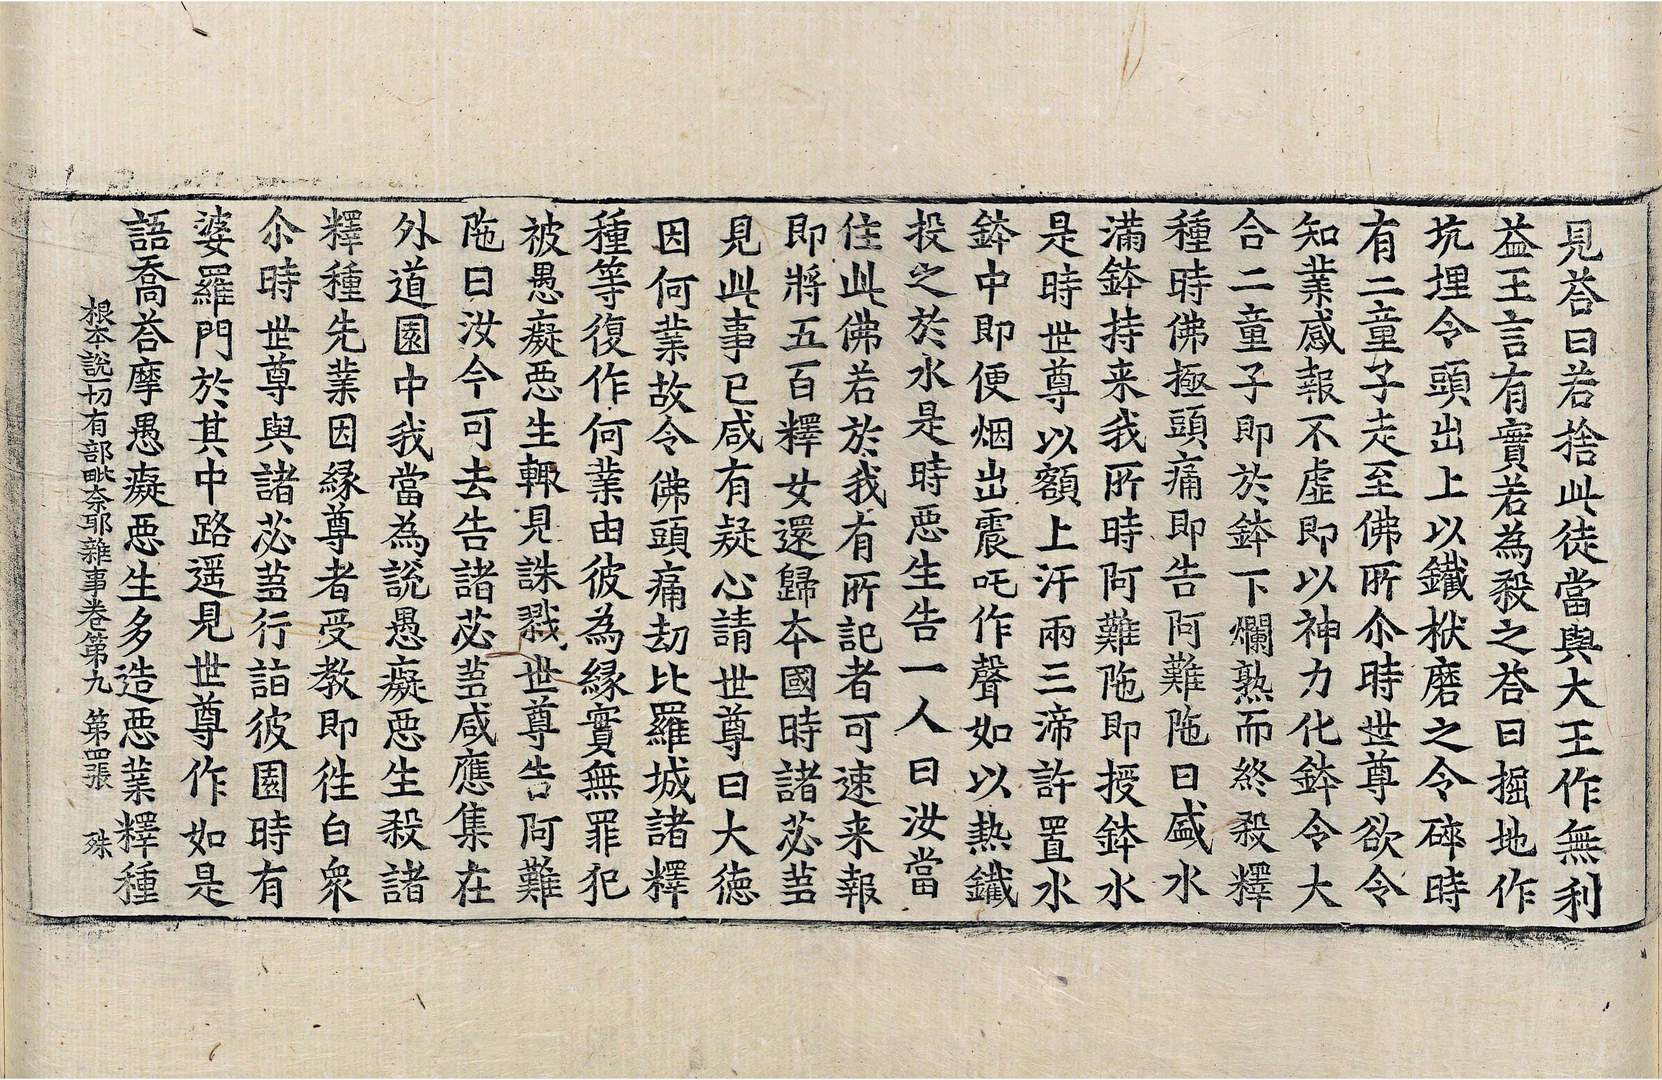 見荅曰若捨此徒當與大王作無利
益王言有實若為殺之荅曰掘地作
坑埋令頭出上以鐵杴磨之令碎時
有二童子走至佛所尒時世尊欲令
知業感報不虛即以神力化鉢令大
合二童子即於鉢下爛熟而終殺釋
種時佛極頭痛即告阿難陁曰盛水
滿鉢持来我所時阿難陁即授鉢水
是時世尊以額上汗兩三渧許置水
鉢中即便烟出震吒作聲如以熱鐵
投之於水是時惡生告一人曰汝當
住此佛若於我有所記者可速来報
即將五百釋女還歸本國時諸苾芻
見此事已咸有疑心請世尊曰大徳
因何業故令佛頭痛劫比羅城諸釋
種等復作何業由彼為縁實無罪犯
被愚癡惡生輙見誅戮世尊告阿難
陁曰汝今可去告諸苾芻咸應集在
外道園中我當為說愚癡惡生殺諸
釋種先業因縁尊者受教即徃白衆
尒時世尊與諸苾芻行詣彼園時有
婆羅門於其中路遥見世尊作如是
語喬荅摩愚癡惡生多造惡業釋種
根本說一切有部毗奈耶雜事卷第九 第四張 殊